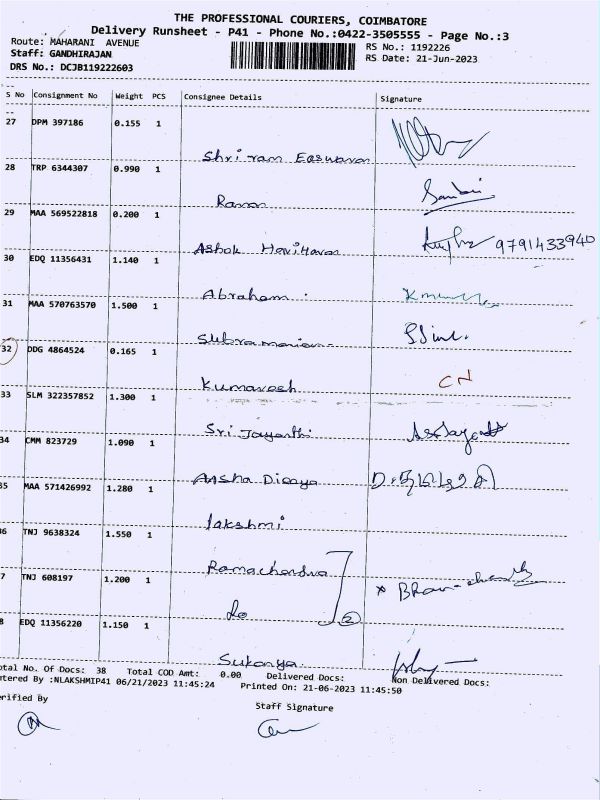 THE PROFESSIONAL COURIERS, COIMBATORE
Delivery Runsheet - P41 - Phone No.:0422-3505555 - Page No.:3
Route: MAHARANI AVENUE RS No.: 1192226
Staff: GANDHIRAJAN RS Date: 21-Jun-2023
DRS No.: DCJB119222603
S No Consignment No Weight PCS Consignee Details Signature
27 DPM 397186 0.155 1
Shri ram Easwaran
28 TRP 6344307 0.990 1
Raman
29 MAA 569522818 0.200 1
Ashok Hariharan 9791433940
30 EDQ 11356431 1.140 1
Abraham
31 MAA 570763570 1.500 1
Subramanian
32 DDG 4864524 0.165 1
Kumaresh CN
33 SLM 322357852 1.300 1
Sri Jayanthi
34 CMM 823729 1.090 1
Ansha Dicaya
35 MAA 571426992 1.280 1
lakshmi
36 TNJ 9638324 1.550 1
Ramachandra
7 TNJ 608197 1.200 1
do 2
8 EDQ 11356220 1.150 1
Sukanya
otal No. Of Docs: 38 Total COD Amt: 0.00 Delivered Docs: Non Delivered Docs:
ntered By :NLAKSHMIP41 06/21/2023 11:45:24 Printed On: 21-06-2023 11:45:50
erified By Staff Signature